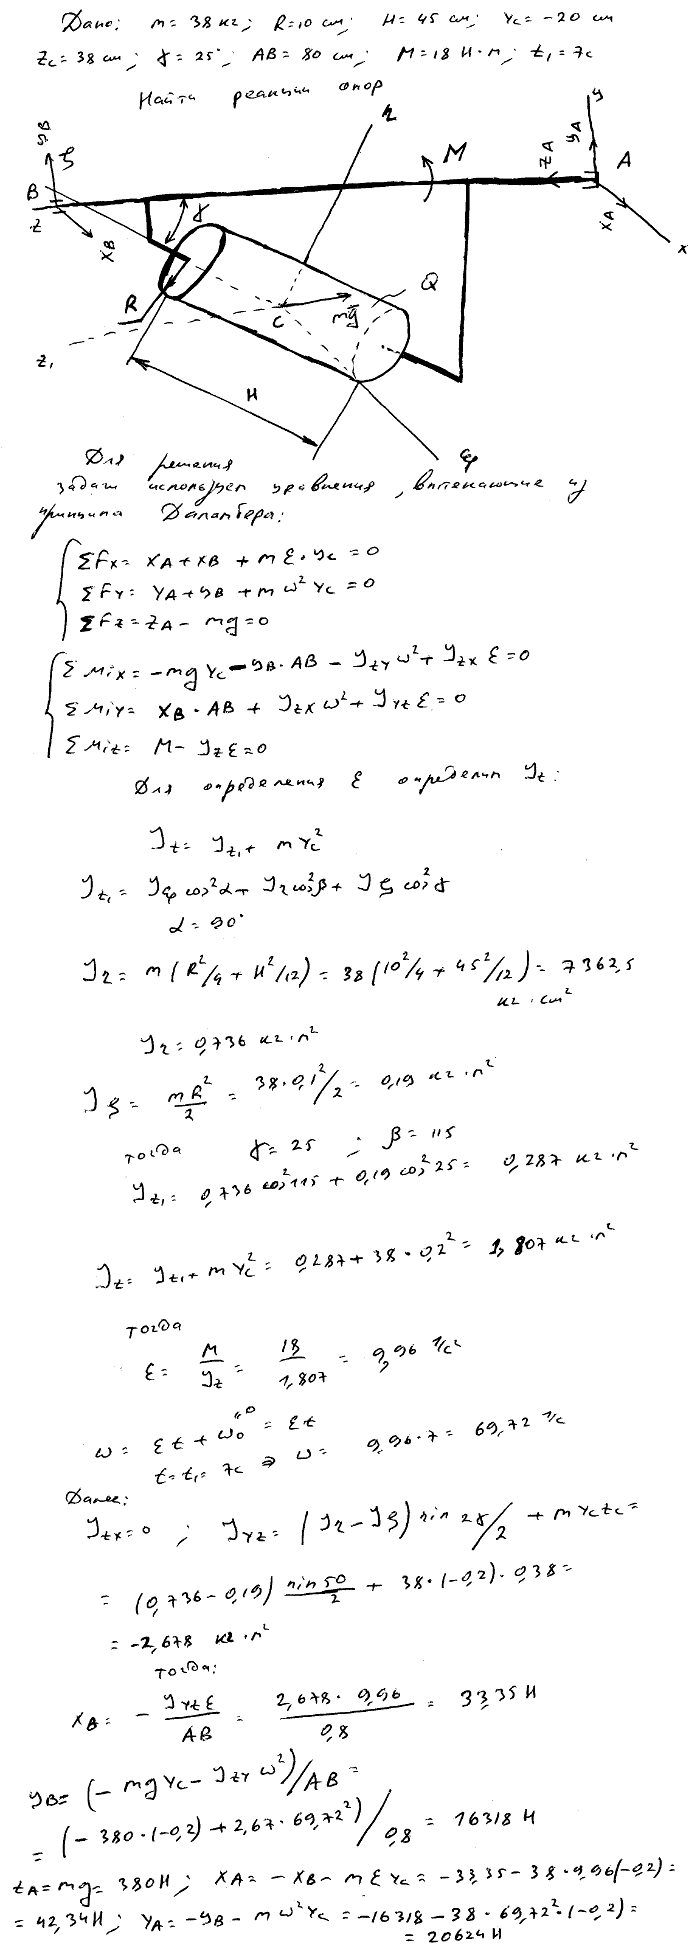 Дано: m = 38 кг; R = 10 см; H = 45 см; Yc = -20 см
Zc = 38 см; γ = 25°; AB = 80 см; M = 18 Н·м; t₁ = 7с
Найти реакции опор
y
yB
ζ
B
z
XB
γ
η
M
zA
yA
A
XA
x
R
C
mg
Q
z₁
H
ξ
Для решения
задачи использует уравнения, вытекающие из
принципа Даламбера:
ΣFx = XA + XB + mε·yc = 0
ΣFy = YA + yB + mω²Yc = 0
ΣFz = ZA - mg = 0
ΣMix = -mgYc - yB·AB - Jzyω² + Jzxε = 0
ΣMiy = XB·AB + Jzxω² + Jyzε = 0
ΣMiz = M - Jzε = 0
Для определения ε определим Jz:
Jz = Jz₁ + mYc²
Jz₁ = Jξ cos²α + Jη cos²β + Jζ cos²γ
α = 90°
Jη = m(R²/4 + H²/12) = 38(10²/4 + 45²/12) = 7362,5
кг·см²
Jη = 0,736 кг·м²
Jζ = mR²/2 = 38·0,1²/2 = 0,19 кг·м²
тогда γ = 25 ; β = 115
Jz₁ = 0,736 cos²115 + 0,19 cos²25 = 0,287 кг·м²
Jz = Jz₁ + mYc² = 0,287 + 38·0,2² = 1,807 кг·м²
тогда
ε = M/Jz = 18/1,807 = 9,96 1/с²
ω = εt + ω₀ = εt
"0
t = t₁ = 7с ⇒ ω = 9,96·7 = 69,72 1/с
Далее:
Jzx = 0 ; Jyz = (Jη - Jζ) sin 2γ/2 + mYcZc =
= (0,736 - 0,19) sin50/2 + 38·(-0,2)·0,38 =
= -2,678 кг·м²
тогда:
XB = - Jyzε/AB = 2,678·9,96/0,8 = 33,35 Н
yB = (-mgYc - Jzyω²)/AB =
= (-380·(-0,2) + 2,67·69,72²)/0,8 = 16318 Н
ZA = mg = 380Н; XA = -XB - mεYc = -33,35 - 38·9,96(-0,2) =
= 42,34Н; YA = -yB - mω²Yc = -16318 - 38·69,72²·(-0,2) =
= 20624 Н